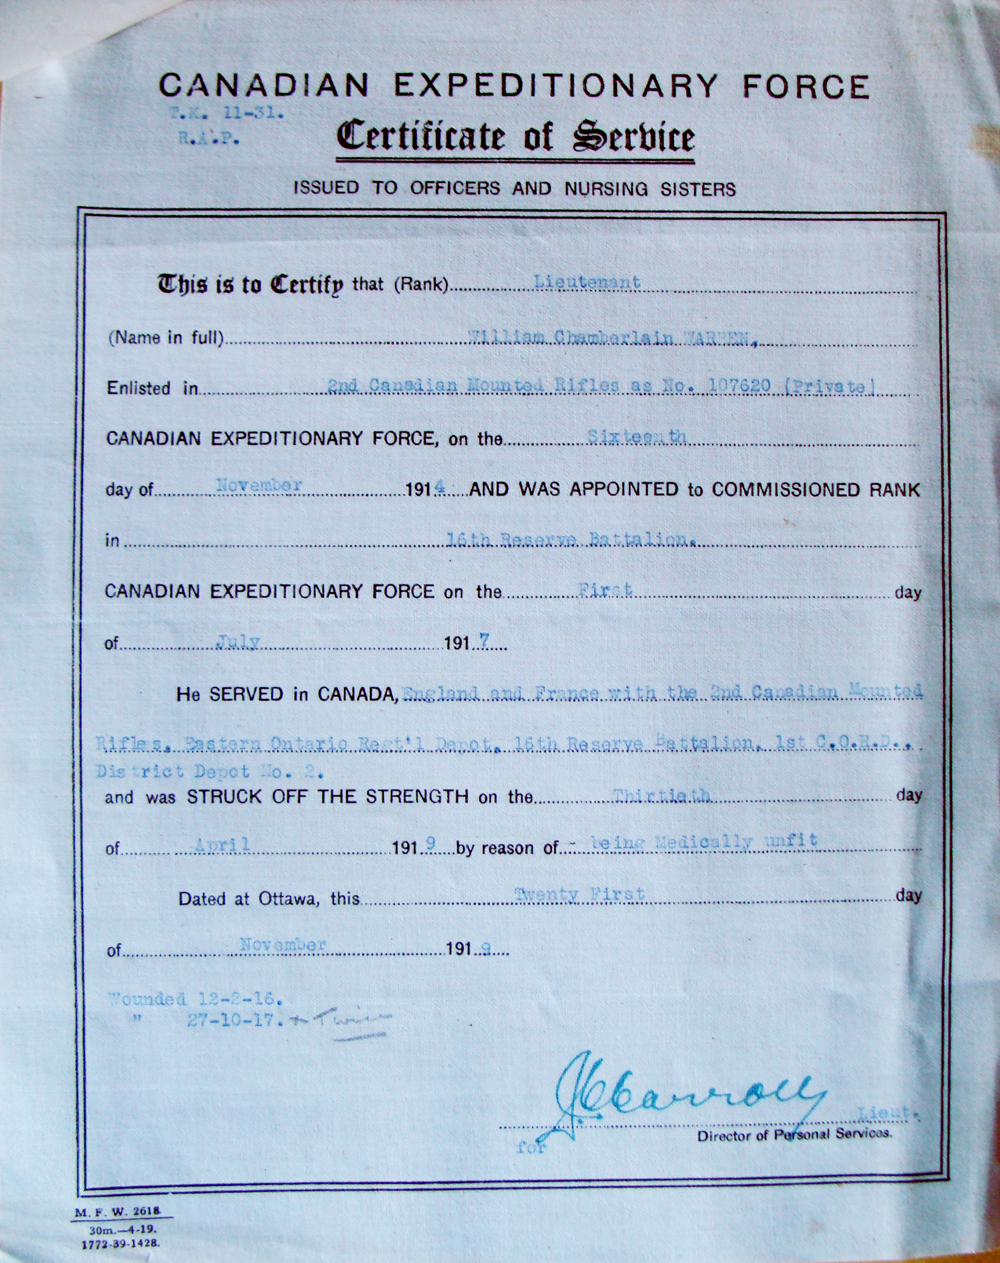 CANADIAN EXPEDITIONARY FORCE
T.K. 11-31.
R.A.P.
Certificate of Service
ISSUED TO OFFICERS AND NURSING SISTERS
This is to Certify that (Rank) Lieutenant
(Name in full) William Chamberlain WARREN,
Enlisted in 2nd Canadian Mounted Rifles as No. 107620 (Private)
CANADIAN EXPEDITIONARY FORCE, on the Sixteenth
day of November 1914 AND WAS APPOINTED to COMMISSIONED RANK
in 16th Reserve Battalion,
CANADIAN EXPEDITIONARY FORCE on the First day
of July 1917
He SERVED in CANADA, England and France with the 2nd Canadian Mounted
Rifles, Eastern Ontario Regt'l Depot, 16th Reserve Battalion, 1st C.O.R.D.,
District Depot No. 2.
and was STRUCK OFF THE STRENGTH on the Thirtieth day
of April 1919 by reason of - being Medically unfit
Dated at Ottawa, this Twenty First day
of November 1919
Wounded 12-2-16.
" 27-10-17. + Twice
J C Carroll
Lieut.
for Director of Personal Services.
M. F. W. 2618
30m.—4-19.
1772-39-1428.